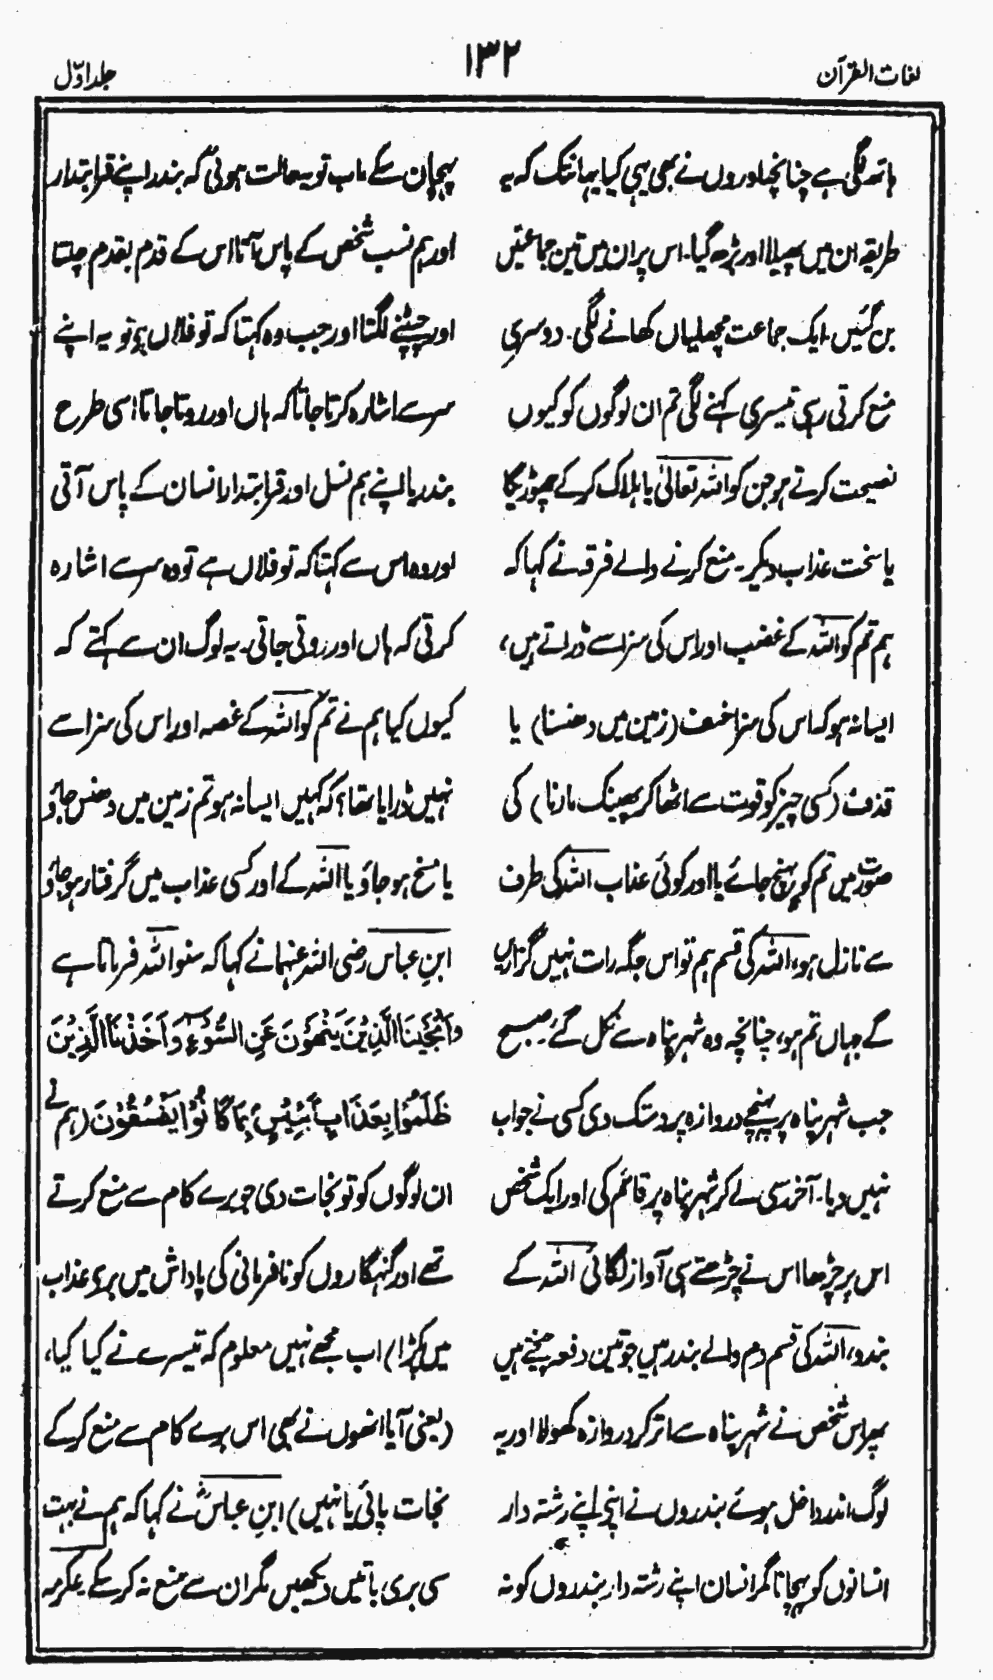 لغات القرآن
۱۳۲
جلد اوّل
ہاتھ لگی ہے چنانچہ اوروں نے بھی یہی کیا یہانتک کہ یہ
طریقہ ان میں پھیلا اور بڑھ گیا۔ اس پر ان میں تین جماعتیں
بن گئیں۔ ایک جماعت مچھلیاں کھانے لگی۔ دوسری
منع کرتی رہی تیسری کہنے لگی تم ان لوگوں کو کیوں
نصیحت کرتے ہو جن کو اللہ تعالیٰ یا ہلاک کر کے چھوڑیگا
یا سخت عذاب دیکر۔ منع کرنے والے فرقہ نے کہا کہ
ہم تم کو اللہ کے غضب اور اس کی سزا سے ڈراتے ہیں،
ایسا نہ ہو کہ اس کی سزا خسف (زمین میں دھنسنا) یا
قذف (کسی چیز کو قوت سے اٹھا کر پھینک مارنا) کی
صورت میں تم کو پہنچ جائے یا اور کوئی عذاب اللہ کی طرف
سے نازل ہو، اللہ کی قسم ہم تو اس جگہ رات نہیں گزاریں
گے جہاں تم ہو، چنانچہ وہ شہر پناہ سے نکل گئے، صبح
جب شہر پناہ پر پہنچے دروازہ پر دستک دی کسی نے جواب
نہیں دیا۔ آخر سی لے کر شہر پناہ پر قائم کی اور ایک شخص
اس پر چڑھا اس نے چڑھتے ہی آواز لگائی اللہ کے
بندو، اللہ کی قسم دم والے بندر ہیں جو تین دفعہ چیختے ہیں
پھر اس شخص نے شہر پناہ سے اتر کر دروازہ کھولا اور یہ
لوگ اندر داخل ہوئے بندروں نے اپنے اپنے رشتہ دار
انسانوں کو پہچانا مگر انسان اپنے رشتہ دار بندروں کو نہ
پہچان سکے، اب تو یہ حالت ہوئی کہ بندر اپنے قرابتدار
اور ہم نسب شخص کے پاس آتا اس کے قدم بقدم چلتا
اور چمٹنے لگتا اور جب وہ کہتا کہ تو فلاں ہے تو یہ اپنے
سر سے اشارہ کرتا جاتا کہ ہاں اور روتا جاتا اسی طرح
بندریا اپنے ہم نسل اور قرابتدار انسان کے پاس آتی
اور وہ اس سے کہتا کہ تو فلاں ہے تو وہ سر سے اشارہ
کرتی کہ ہاں اور روتی جاتی۔ یہ لوگ ان سے کہتے کہ
کیوں کیا ہم نے تم کو اللہ کے غصہ اور اس کی سزا سے
نہیں ڈرایا تھا؟ کہ کہیں ایسا نہ ہو تم زمین میں دھنس جاؤ
یا مسخ ہو جاؤ یا اللہ کے اور کسی عذاب میں گرفتار ہو جاؤ
ابنِ عباس رضی اللہ عنہما نے کہا کہ سنو اللہ فرماتا ہے
وَاَنْجَيْنَا الَّذِيْنَ يَنْهَوْنَ عَنِ السُّوْٓءِ وَاَخَذْنَا الَّذِيْنَ
ظَلَمُوْا بِعَذَابٍۭ بَئِيْسٍۭ بِمَا كَانُوْا يَفْسُقُوْنَ (ہم نے
ان لوگوں کو تو نجات دی جو برے کام سے منع کرتے
تھے اور گنہگاروں کو نافرمانی کی پاداش میں بری عذاب
میں پکڑا) اب مجھے نہیں معلوم کہ تیسرے نے کیا کیا،
(یعنی آیا انھوں نے بھی اس برے کام سے منع کر کے
نجات پائی یا نہیں) ابنِ عباسؓ نے کہا کہ ہم نے بہت
سی بری باتیں دیکھیں مگر ان سے منع نہ کر سکے۔ عکرمہ